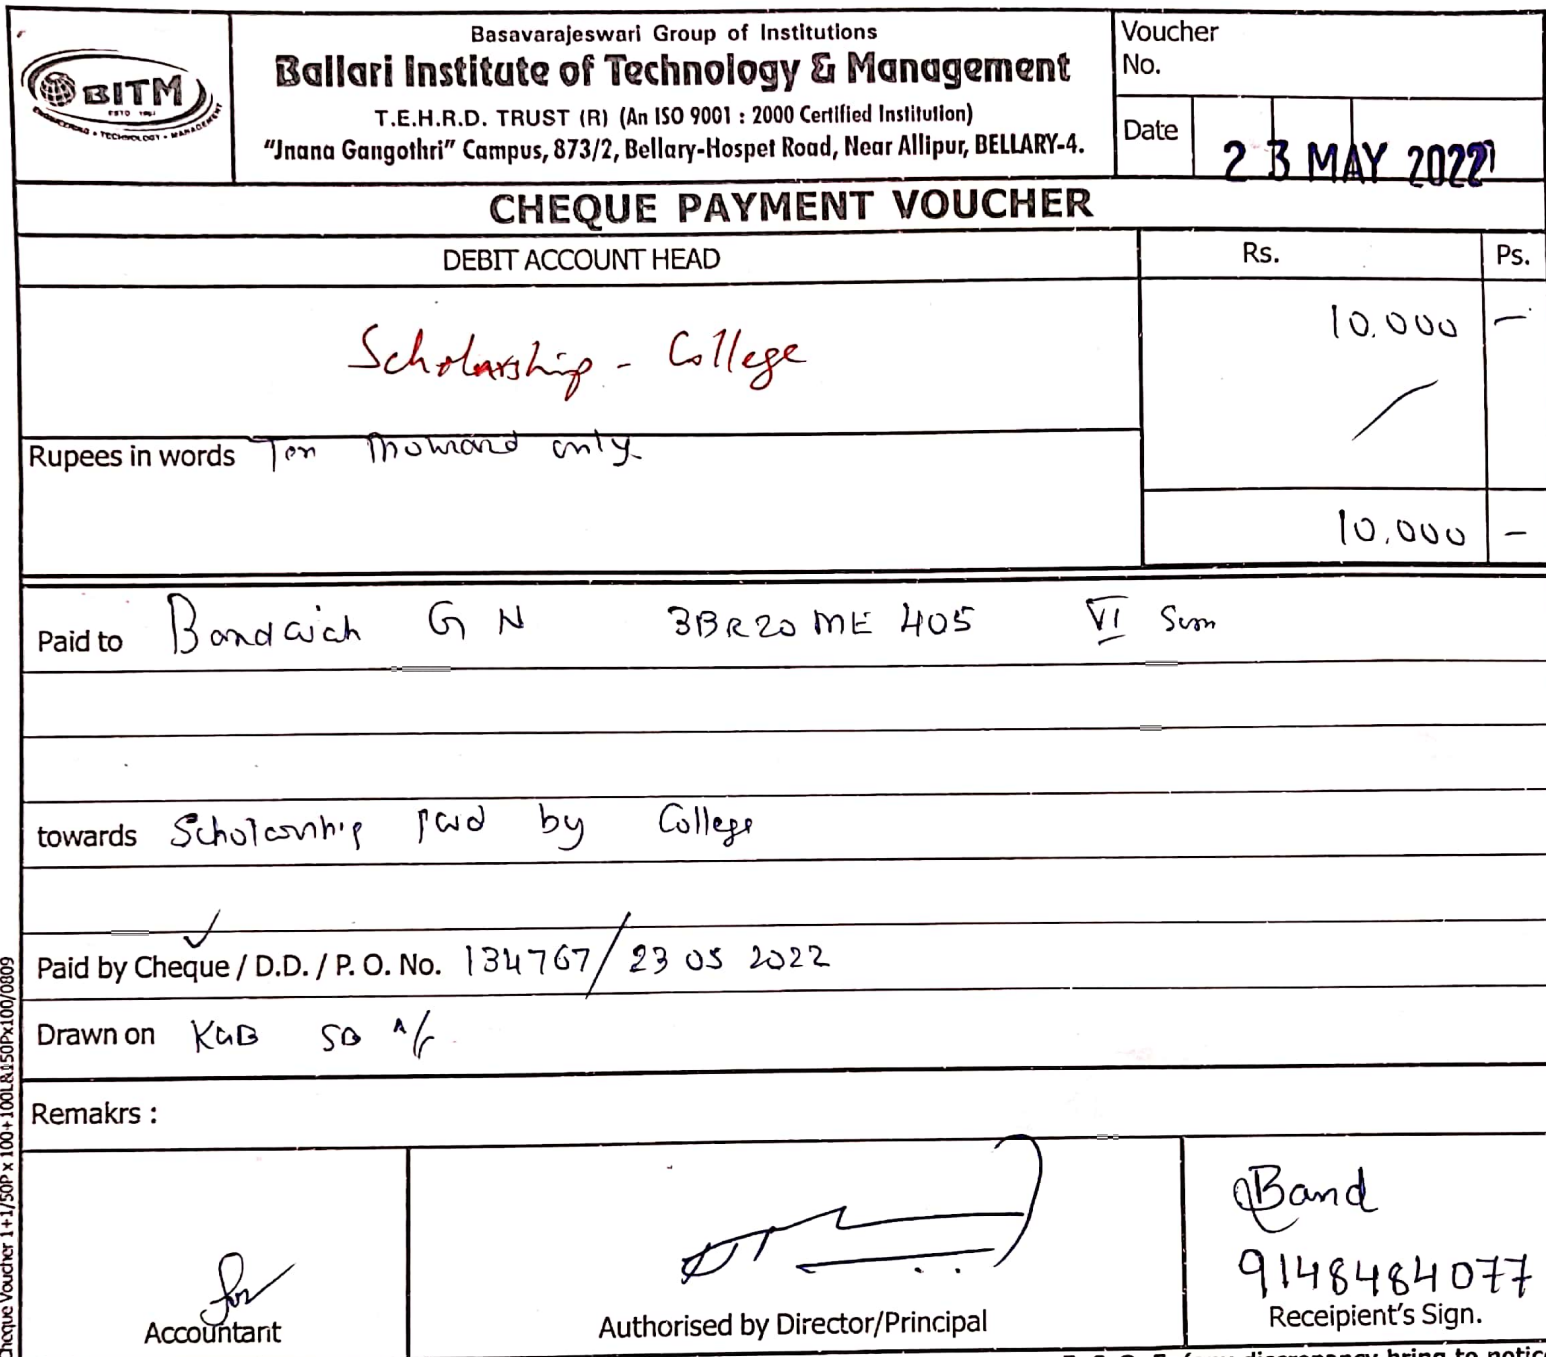 BITM
ESTD 1997
ENGINEERING • TECHNOLOGY • MANAGEMENT
Basavarajeswari Group of Institutions
Ballari Institute of Technology & Management
T.E.H.R.D. TRUST (R) (An ISO 9001 : 2000 Certified Institution)
"Jnana Gangothri" Campus, 873/2, Bellary-Hospet Road, Near Allipur, BELLARY-4.
Voucher
No.
Date 23 MAY 2022
CHEQUE PAYMENT VOUCHER
DEBIT ACCOUNT HEAD Rs. Ps.
Scholarship - College 10.000 —
Rupees in words Ten Thousand only
10.000 —
Paid to G N 3BR20ME405 VI Sem
towards Scholarship paid by College
Paid by Cheque / D.D. / P. O. No. 134767/23 05 2022
Drawn on KGB SB A/c
Remakrs :
Band
9148484077
Accountant Authorised by Director/Principal Receipient's Sign.
Cheque Voucher 1+1/50P x 100+100L&150Px100/0809